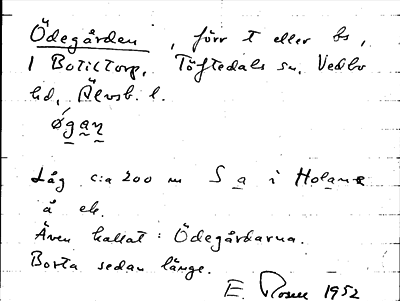 Ödegården, förr t eller bs,
i Botiltorp, Töftedals sn, Vedbo
hd, Älvsb. l.
øgaɲ
Låg c:a 200 m S a i Holane
å ek.
Även kallat: Ödegårdarna.
Borta sedan länge.
E. Rosen 1952